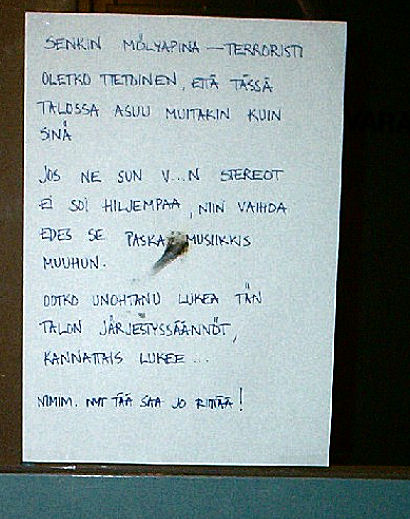 SENKIN MÖLYAPINA — TERRORISTI
OLETKO TIETOINEN, ETTÄ TÄSSÄ
TALOSSA ASUU MUITAKIN KUIN
SINÄ
JOS NE SUN V...N STEREOT
EI SOI HILJEMPAA, NIIN VAIHDA
EDES SE PASKA MUSIIKKIS
MUUHUN.
OOTKO UNOHTANU LUKEA TÄN
TALON JÄRJESTYSSÄÄNNÖT,
KANNATTAIS LUKEE ...
NIMIM. NYT TÄÄ SAA JO RIITTÄÄ!